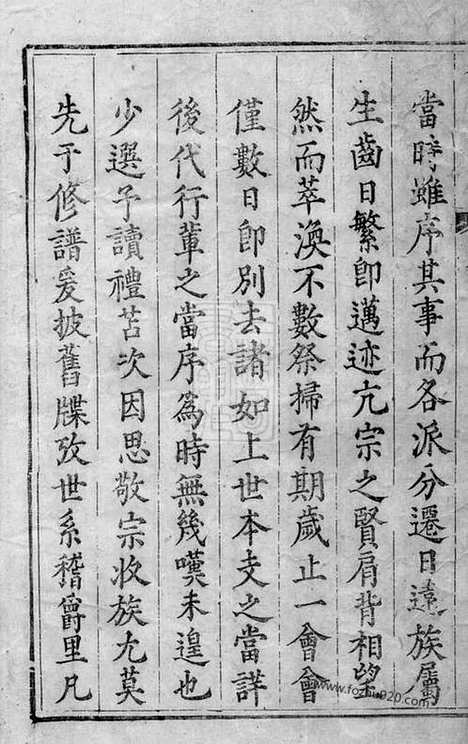 當時雖序其事而各派分遷日遠族屬
生齒日繁卽邁迹亢宗之賢肩背相望
然而萃渙不數祭掃有期歲止一會會
僅數日卽別去諸如上世本支之當詳
後代行輩之當序為時無幾嘆未遑也
少選予讀禮苫次因思敬宗收族尤莫
先于修譜爰披舊牒攷世系稽爵里凡
www.fozhu920.com